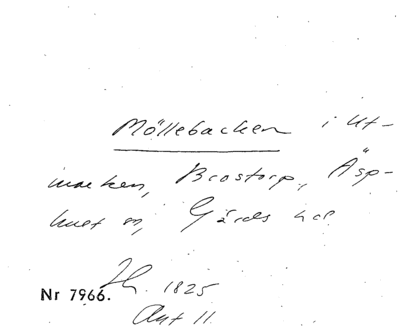 Möllebacken i ut-
marken, Brostorp, Äsp-
huet sn, Gärds hd.
Nr 7966. 1825
Akt 11